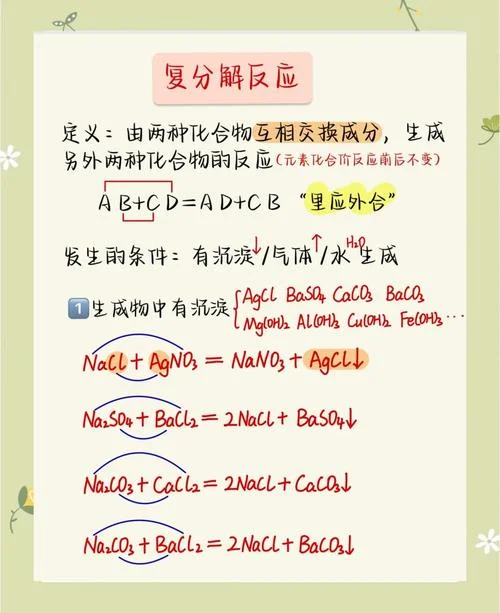 复分解反应
定义：由两种化合物互相交换成分，生成
另外两种化合物的反应(元素化合价反应前后不变)
AB+CD=AD+CB “里应外合”
发生的条件：有沉淀↓/气体↑/水H₂O生成
1 生成物中有沉淀{AgCl BaSO₄ CaCO₃ BaCO₃
Mg(OH)₂ Al(OH)₃ Cu(OH)₂ Fe(OH)₃ ···
NaCl+AgNO₃=NaNO₃+AgCl↓
Na₂SO₄+BaCl₂=2NaCl+BaSO₄↓
Na₂CO₃+CaCl₂=2NaCl+CaCO₃↓
Na₂CO₃+BaCl₂=2NaCl+BaCO₃↓